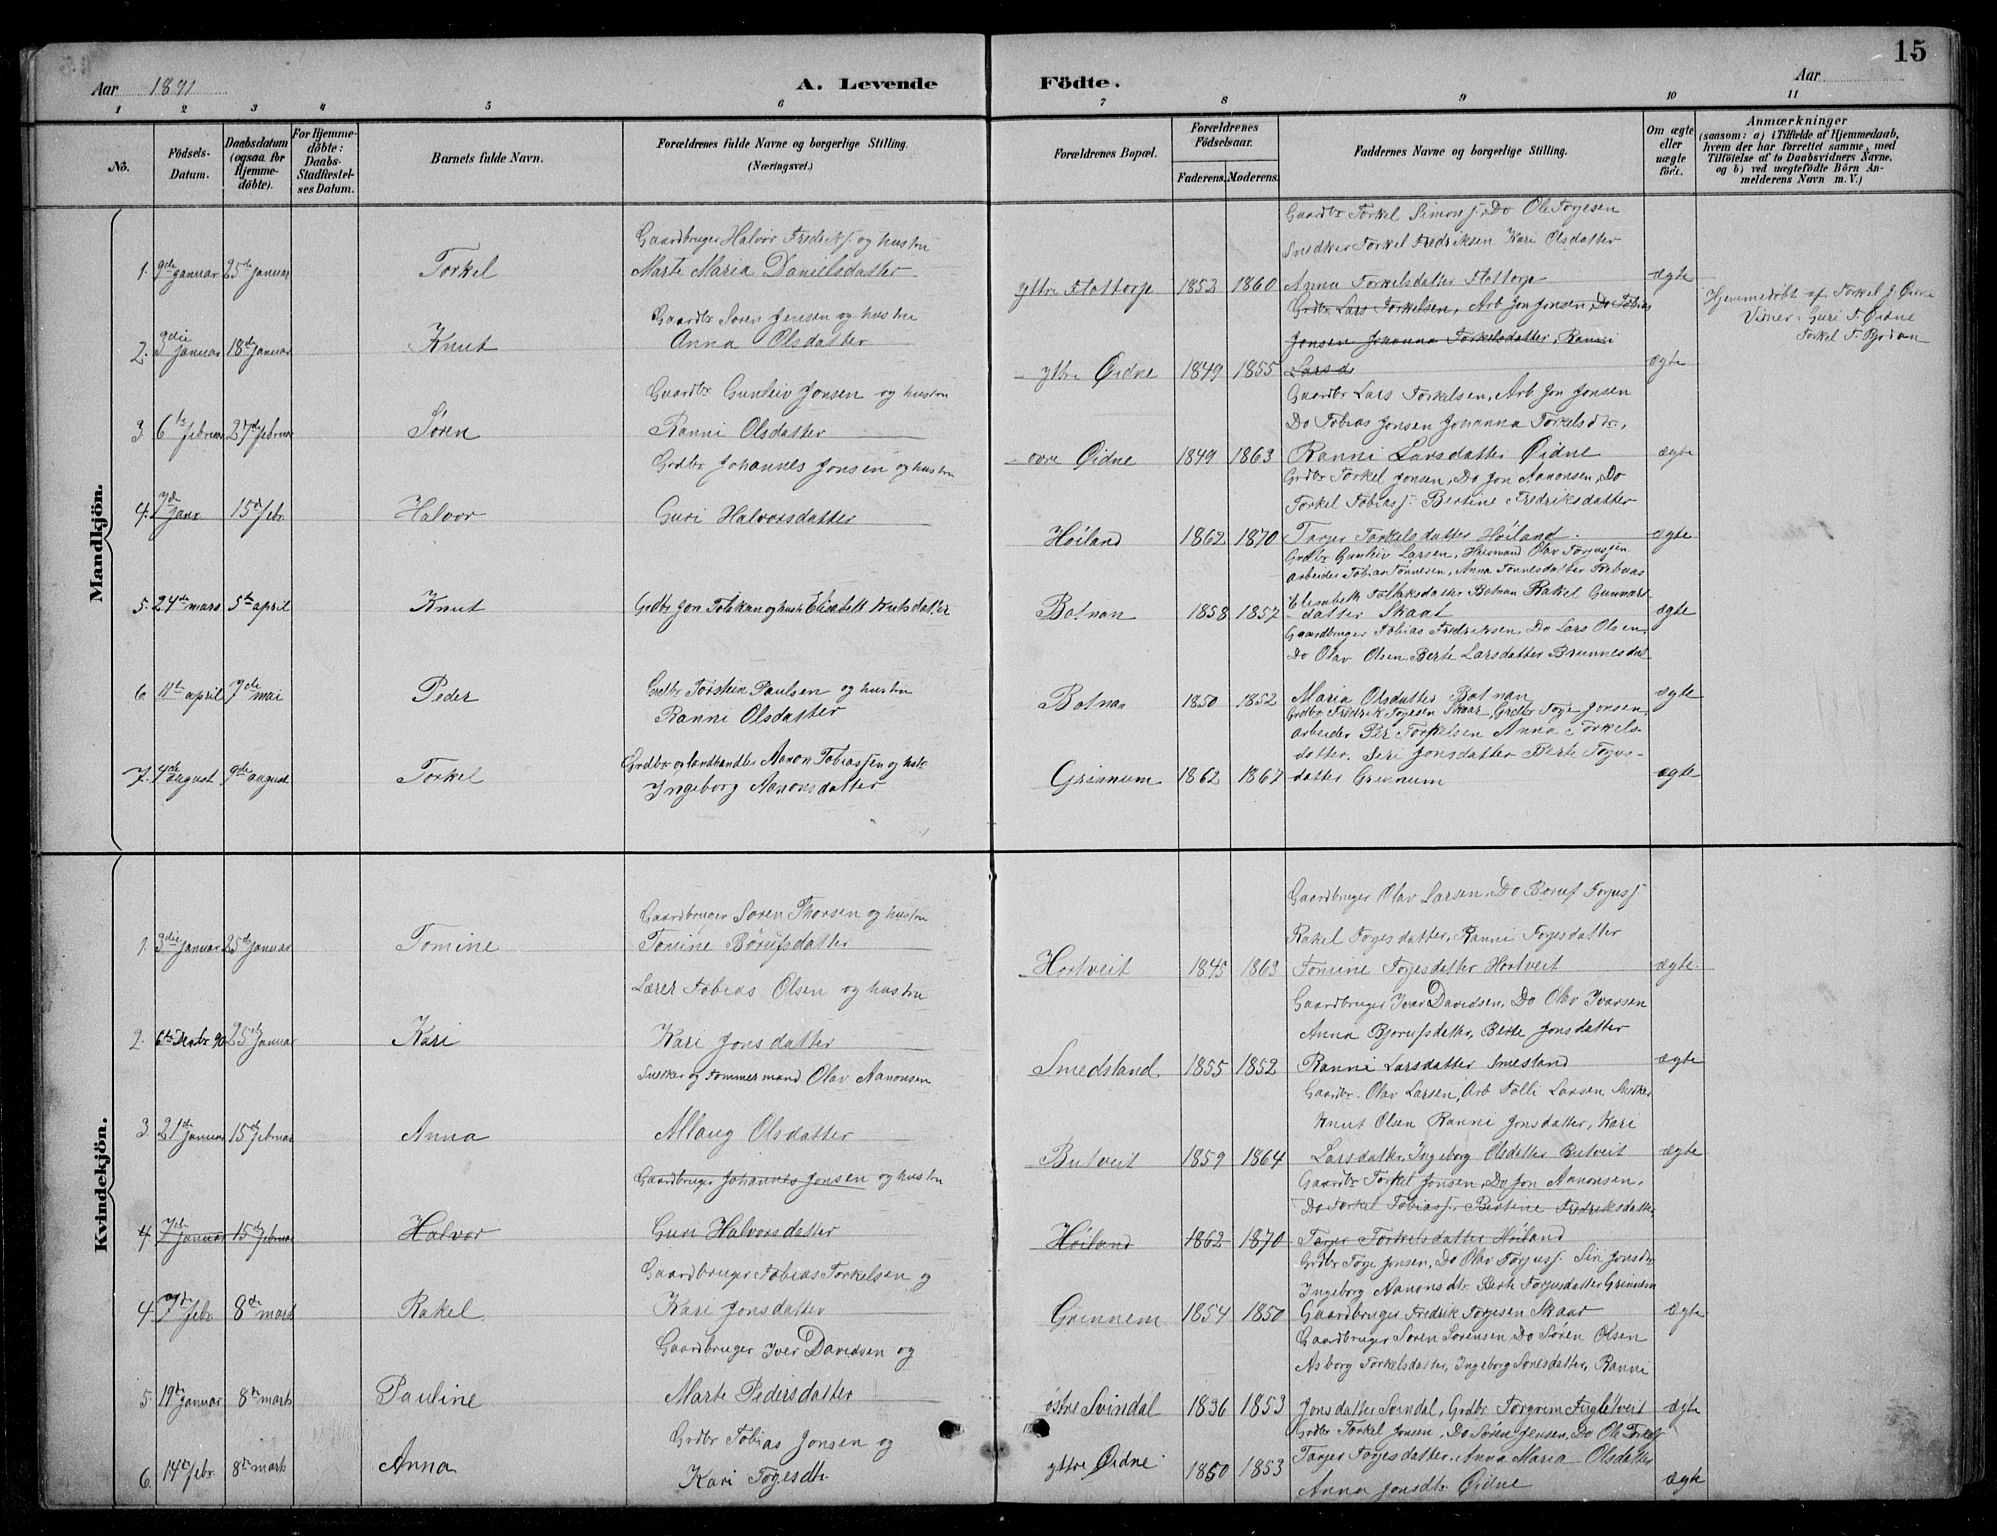 15
Aar 1891 A. Levende Födte. Aar
1 2 3 4 5 6 7 8 9 10 11
No.
Födsels-Datum.
Daabsdatum (ogsaa for Hjemme-döbte).
For Hjemme-döbte: Daabs-Stadfæstel-ses Datum.
Barnets fulde Navn.
Forældrenes fulde Navne og borgerlige Stilling.
(Næringsvei.)
Forældrenes Bopæl.
Forældrenes Födselsaar.
Faderens. Moderens.
Faddernes Navne og borgerlige Stilling.
Om ægte eller uægte født.
Anmærkninger
(saasom: a) i Tilfælde af Hjemmedaab, hvem der har forrettet samme, med Tilföielse af to Daabsvidners Navne, og b) ved uægtefödte Börn An-melderens Navn m. V.)
Mandkjön.
Gaardbruger Halvor Fredriks. og hustru
Gaardbr Torkel Simons., Do Ole Torjesen
Snedker Torkel Fredriksen Kari Olsdatter
1. 9de januar 25de januar Torkel Marte Maria Danielsdatter yttre Flottorp 1852 1860 Anna Torkelsdatter Flottorp ægte
Gaardbr Søren Jensen og hustru
Grdbr Lars Torkelsen, Arb Jon Jonsen, Do Tobias
Jonsen Johanna Torkelsdatter, Ranni
2. 3die januar 18de januar Knut Anna Olsdatter yttre Øidne 1849 1855 Larsd ægte
Hjemmedøbt af Torkel J Øidne
Vidner: Guri T. Øidne
Gaardbr Gunleiv Jonsen og hustru
Gaardbr Lars Torkelsen, Arb Jon Jonsen
Do Tobias Jonsen Johanna Torkelsdtr,
3. 6te februar 27de februar Søren Ranni Olsdatter øvre Øidne 1849 1863 Ranni Larsdatter Øidne ægte
Grdbr Johannes Jonsen og hustru
Grdbr Torkel Jonsen, Do Jon Aanonsen, Do
Torkel Tobiass. Bertine Fredriksdatter
4. 7de Janr 15de febr. Halvor Guri Halvorsdatter Høiland 1862 1870 Tarjer Torkelsdatter Høiland. ægte
Grdbr Gunleiv Larsen, Husmand Olav
Arbeider Tobias Tønnesen, Anna Tønnesdatter
Elisabeth Botnan Rakel Gunnars-
5. 24de mars 5te april Knut Grdbr Jon og hustr Elisabeth Knutsdatter Botnan 1858 1857 datter Skaat ægte
Gaardbruger Tobias Fredriksen, Do Lars Olsen,
Do Olav Olsen Berte Larsdatter
6. 11te april 7de mai Peder Grdbr Torstein Paulsen og hustru
Ranni Olsdatter Botnan 1850 1852 Maria Olsdatter Botnan ægte
Grdbr Fredrik Torjesen Skaar, Grdbr Torje Jonsen,
Arbeider Per Torkelsen Anna Torkels-
datter, Siri Jonsdatter Berte Torjus-
7. 4de august 9de august Torkel Grdbr og landhandler Aanon Tobiassen og hstr
Ingeborg Aanonsdatter Grinnum 1862 1867 datter Grinnum ægte
Kvindekjön.
Gaardbruger Søren Thorsen og hustru
Gaardbruger Olav Larsen, Do Børuf Torjuss.
Rakel Torjesdatter, Ranni Torjesdatter
1. 3die januar 25de januar Tomine Tomine Børufsdatter Hortveit 1845 1863 Tomine Torjesdatter Hortveit ægte.
Lærer Tobias Olsen og hustru
Gaardbruger Iver Davidsen, Do Olav Ivarsen
Anna Bjorufsdatter, Berte Jonsdatter
2. 6te Decbr 90 25de januar Kari Kari Jonsdatter Smedsland 1855 1852 Ranni Larsdatter Smesland ægte
Snekker og Tømmermand Olav Aanonsen
Gaardbr. Olav Larsen, Arb Tolli Larsen, Snedker
Knut Olsen Ranni Jonsdatter, Kari
3. 21de januar 15de februar Anna Allaug Olsdatter Butveit 1859 1864 Larsdatter, Ingeborg Olsdatter Butveit ægte
Gaardbruger Johannes Jonsen og hustru
Gaardbr Torkel Jonsen, Do Jon Aanonsen,
Do Torkel Tobiass. Bertine Fredriksdatter
4. 7de januar 15de februar Halvor Guri Halvorsdatter Høiland 1862 1870 Tarjer Torkelsdatter Høiland
Gaardbruger Tobias Torkelsen og
Grdbr Torje Jonsen, Do Olav Torjuss. Siri Jonsdtr
Ingeborg Aanonsdtr. Berte Torjusdatter Grinnem
4. 7de febr. 8de marts Rakel Kari Jonsdatter Grinnem 1854 1850 Gaardbruger Fredrik Torjesen Skaar ægte
Gaardbruger Iver Davidsen og
Gaardbruger Søren Sørensen, Do Søren Olsen
Asborg Torkelsdatter, Ingeborg Sonesdatter, Ranni
5. 19de januar 8de marts Pauline Marte Pedersdatter østre Svindal 1836 1853 Jonsdatter Svindal, Grdbr Torgrim Fugletveit ægte
Grdbr Tobias Jonsen og
Grdbr Torkel Jonsen, Do Søren Jensen, Do Ole Torkels.
Tarjer Torjesdatter, Anna Maria Olsdatter
6. 14de febr. 8de marts Anna Kari Torjesdtr yttre Øidne 1850 1853 Anna Jonsdtr Øidne ægte